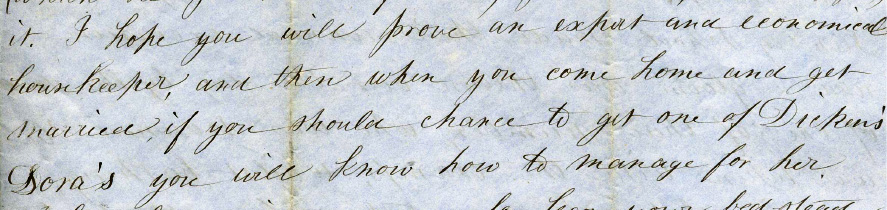 it. I hope you will prove an expert and economical
housekeeper, and then when you come home and get
married, if you should chance to get one of Dicken's
Dora's you will know how to manage for her.
your bedstead